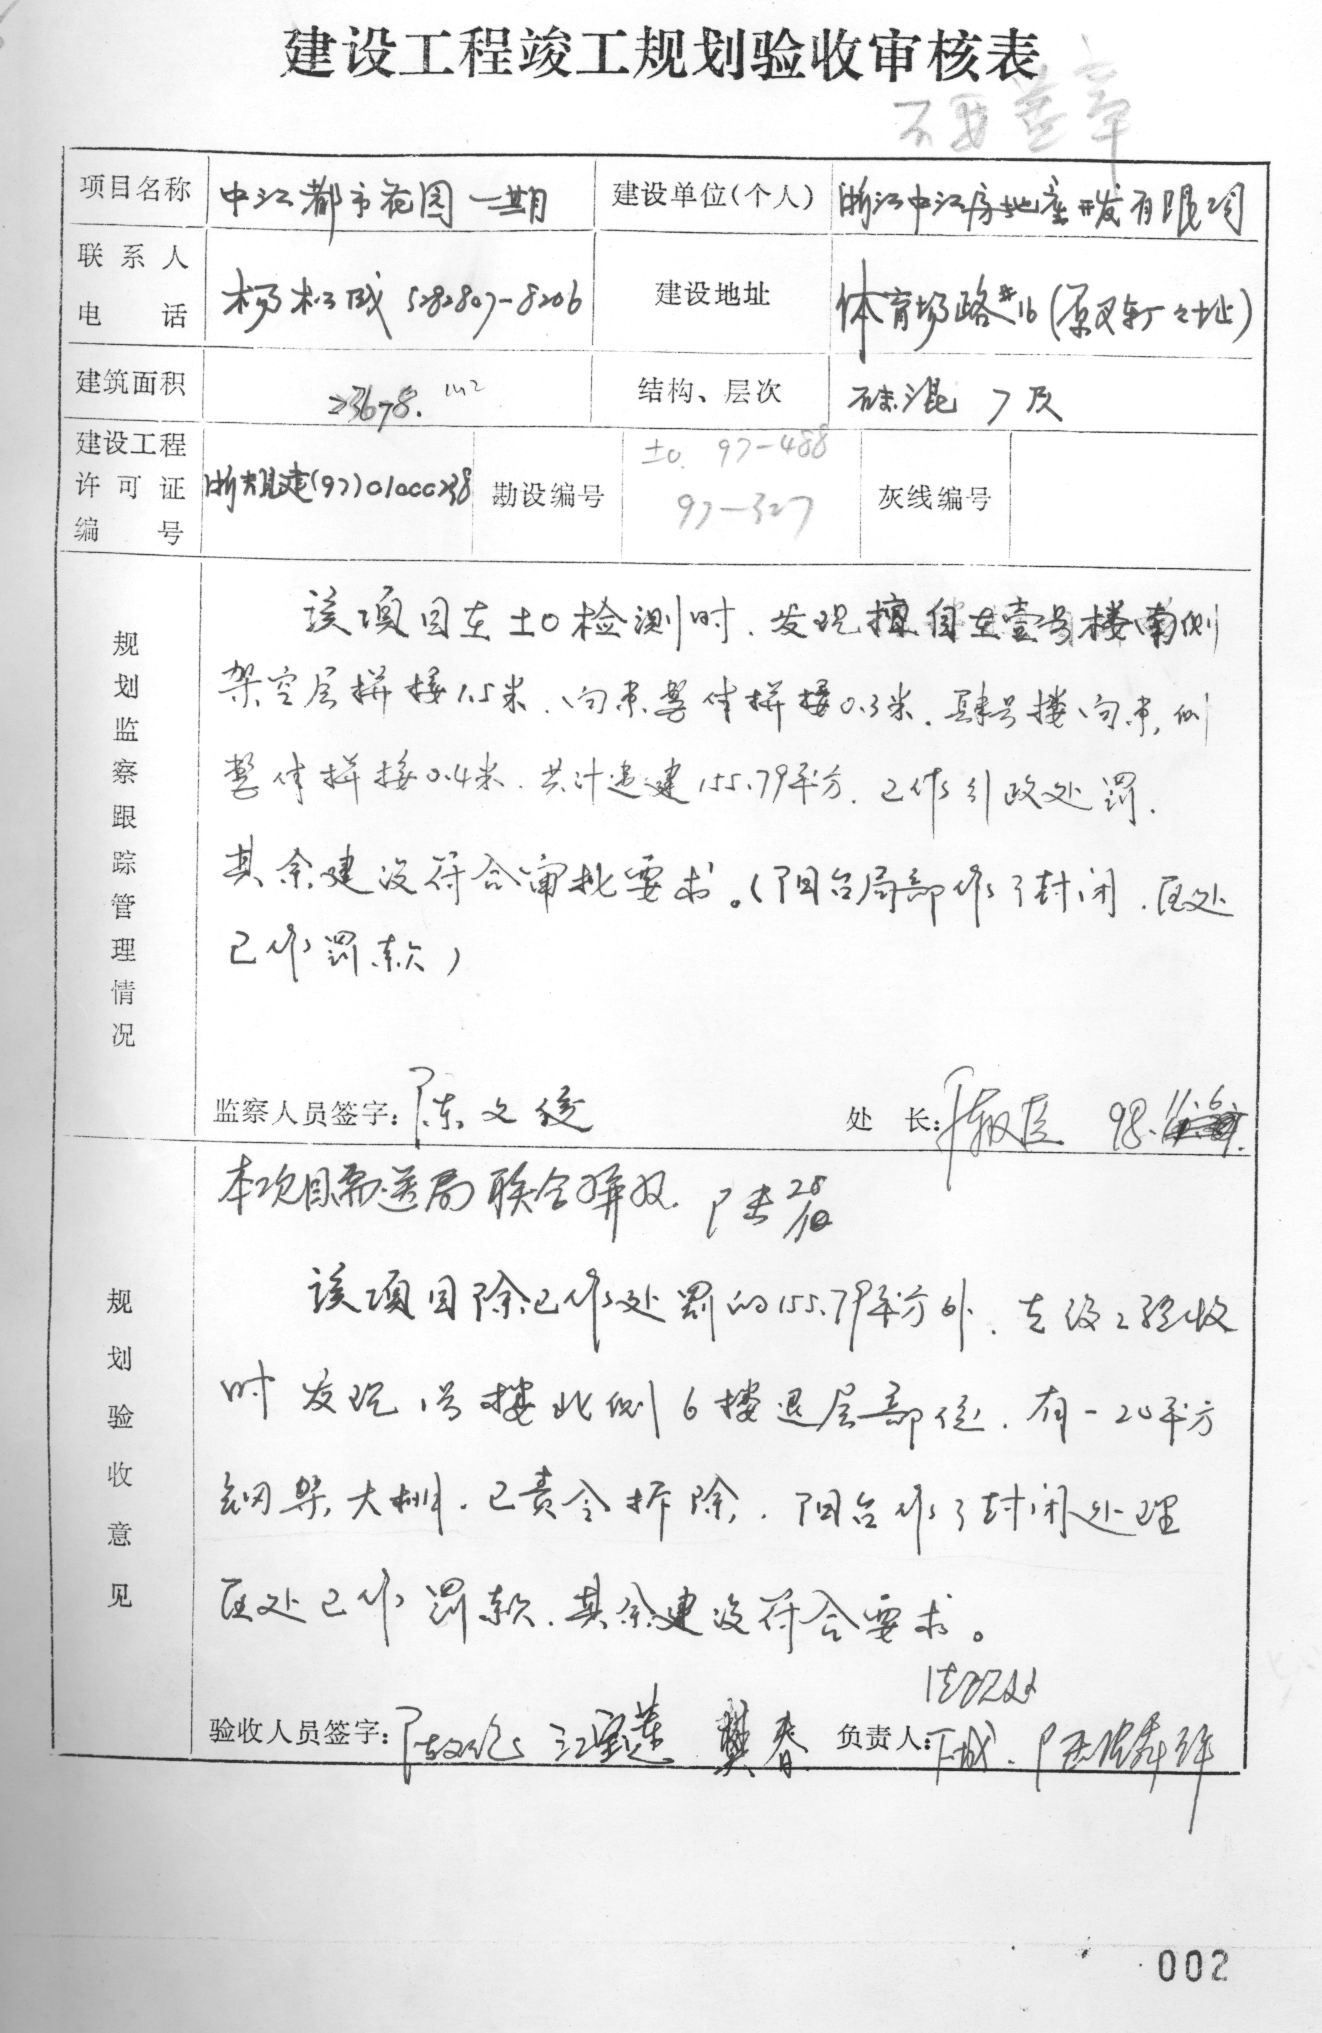 建设工程竣工规划验收审核表
不要盖章
项目名称 中江都市花园一期 建设单位(个人) 浙江中江房地产开发有限公司
联系人
电话 杨松成 5282807-8206 建设地址 体育场路#16(原叉车厂之址)
建筑面积 23678.m² 结构、层次 砖混 7层
建设工程
许可证
编号 浙规建(97)0100038 勘设编号 ±0. 97-488
97-327 灰线编号
规划监察跟踪管理情况
该项目在±0检测时、发现擅自在壹号楼南侧
架空层拼接1.5米、向东整体拼接0.3米、肆号楼向东侧
整体拼接0.4米、共计违建155.79平方、已作行政处罚.
其余建设符合审批要求。(阳台局部作了封闭、区处
已作罚款)
监察人员签字: 陈文俊 处长: 98.11.6
规划验收意见
本项目需送局联合验收
28/10
该项目除已作处罚的155.79平方外、在竣工验收
时发现1号楼北侧6楼退层部位、有一20平方
钢架大棚、已责令拆除、阳台作了封闭处理
区处已作罚款、其余建设符合要求。
验收人员签字: 樊春 负责人: 下城
002